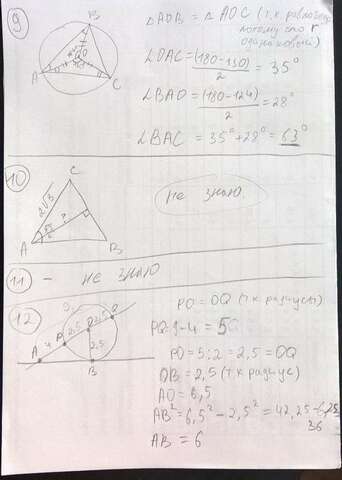 9
B
A
O
C
△AOB = △AOC (т.к. равнобед
потому что r
одинаковый)
∠OAC = (180-110)/2 = 35°
∠BAO = (180-124)/2 = 28°
∠BAC = 35° + 28° = 63°
10
C
2√3
?
A
B
не знаю.
11 - не знаю
12
A
4
P
2,5
O
2,5
Q
2,5
B
PO = OQ (т.к радиусы)
PQ = 9-4 = 5
PO = 5:2 = 2,5 = OQ
OB = 2,5 (т.к радиус)
AO = 6,5
AB² = 6,5² - 2,5² = 42,25 - 6,25
36
AB = 6